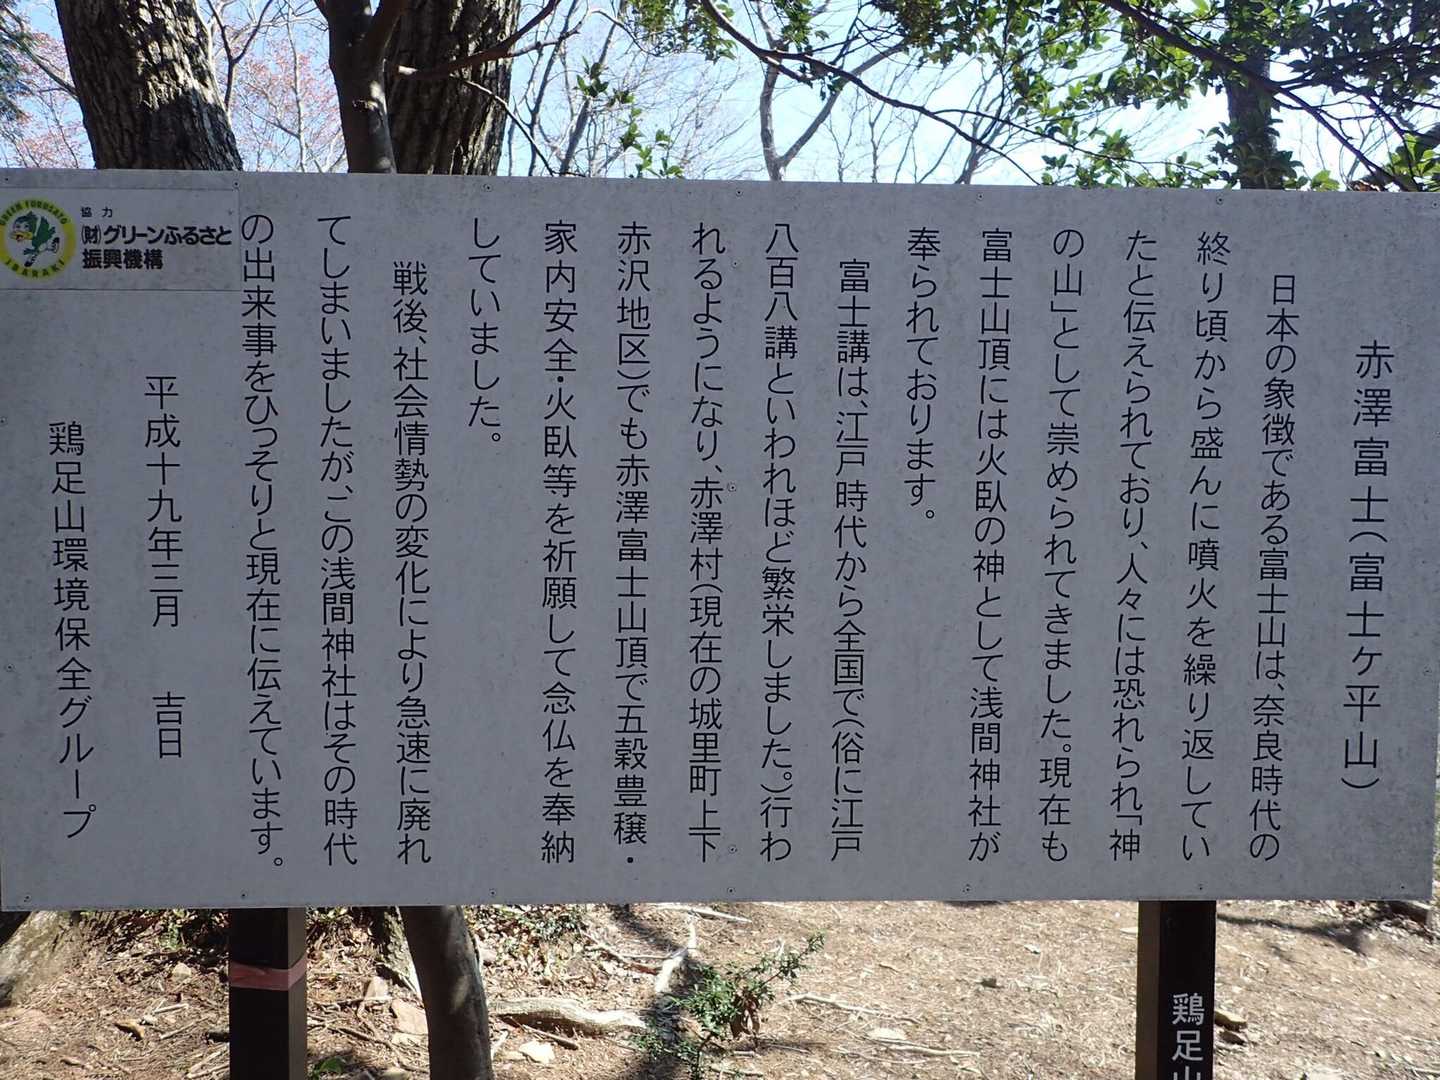 赤澤富士(富士ヶ平山)
日本の象徴である富士山は、奈良時代の
終り頃から盛んに噴火を繰り返してい
たと伝えられており、人々には恐れられ「神
の山」として崇められてきました。現在も
富士山頂には火臥の神として浅間神社が
奉られております。
富士講は、江戸時代から全国で(俗に江戸
八百八講といわれほど繁栄しました。)行わ
れるようになり、赤澤村(現在の城里町上下
赤沢地区)でも赤澤富士山頂で五穀豊穣・
家内安全・火臥等を祈願して念仏を奉納
していました。
戦後、社会情勢の変化により急速に廃れ
てしまいましたが、この浅間神社はその時代
の出来事をひっそりと現在に伝えています。
平成十九年三月 吉日
鶏足山環境保全グループ
GREEN FURUSATO
IBARAKI
協力
(財)グリーンふるさと
振興機構
鶏足山